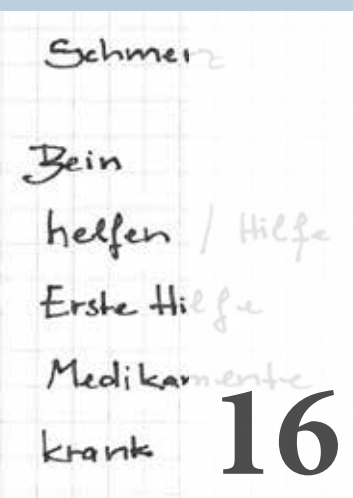 Schmerz
Bein
helfen / Hilfe
Erste Hilfe
Medikamente
krank
16